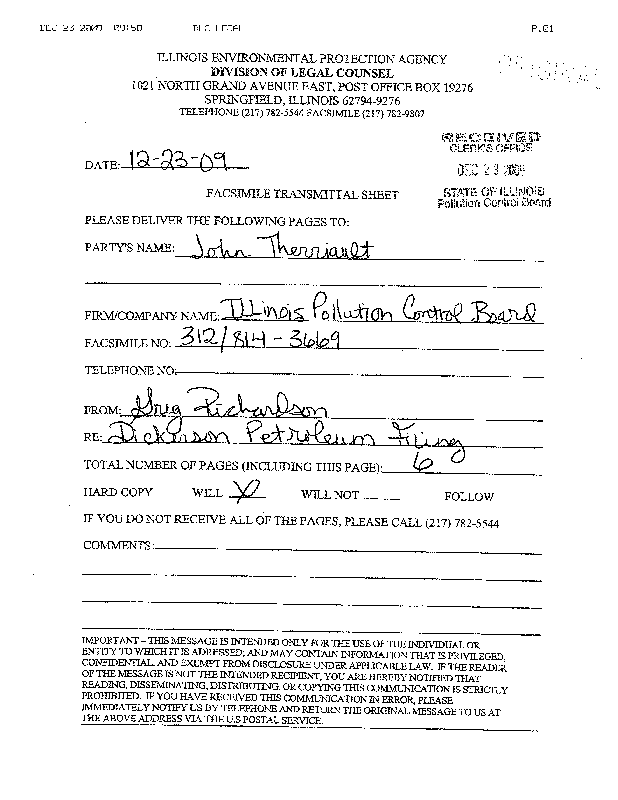 DEC 23 2009 09:50 DLC LEGAL P.01
ILLINOIS ENVIRONMENTAL PROTECTION AGENCY
DIVISION OF LEGAL COUNSEL
1021 NORTH GRAND AVENUE EAST, POST OFFICE BOX 19276
SPRINGFIELD, ILLINOIS 62794-9276
TELEPHONE (217) 782-5544 FACSIMILE (217) 782-9807
RECEIVED
CLERK'S OFFICE
DEC 23 2009
STATE OF ILLINOIS
Pollution Control Board
DATE: 12-23-09
FACSIMILE TRANSMITTAL SHEET
PLEASE DELIVER THE FOLLOWING PAGES TO:
PARTY'S NAME: John Therriault
FIRM/COMPANY NAME: Illinois Pollution Control Board
FACSIMILE NO: 312/814-3669
TELEPHONE NO:
FROM: Greg Richardson
RE: Dickerson Petroleum Filing
TOTAL NUMBER OF PAGES (INCLUDING THIS PAGE): 6
HARD COPY WILL X WILL NOT FOLLOW
IF YOU DO NOT RECEIVE ALL OF THE PAGES, PLEASE CALL (217) 782-5544
COMMENTS:
IMPORTANT – THIS MESSAGE IS INTENDED ONLY FOR THE USE OF THE INDIVIDUAL OR
ENTITY TO WHICH IT IS ADRESSED; AND MAY CONTAIN INFORMATION THAT IS PRIVILEGED,
CONFIDENTIAL AND EXEMPT FROM DISCLOSURE UNDER APPLICABLE LAW. IF THE READER
OF THE MESSAGE IS NOT THE INTENDED RECIPIENT, YOU ARE HEREBY NOTIFIED THAT
READING, DISSEMINATING, DISTRIBUTING, OR COPYING THIS COMMUNICATION IS STRICTLY
PROHIBITED. IF YOU HAVE RECEIVED THIS COMMUNICATION IN ERROR, PLEASE
IMMEDIATELY NOTIFY US BY TELEPHONE AND RETURN THE ORIGINAL MESSAGE TO US AT
THE ABOVE ADDRESS VIA THE U.S POSTAL SERVICE.